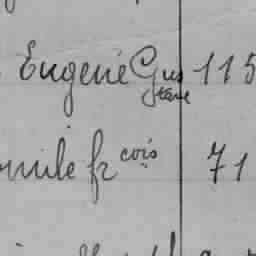 Eugene Gustave 115
mile frcois 71